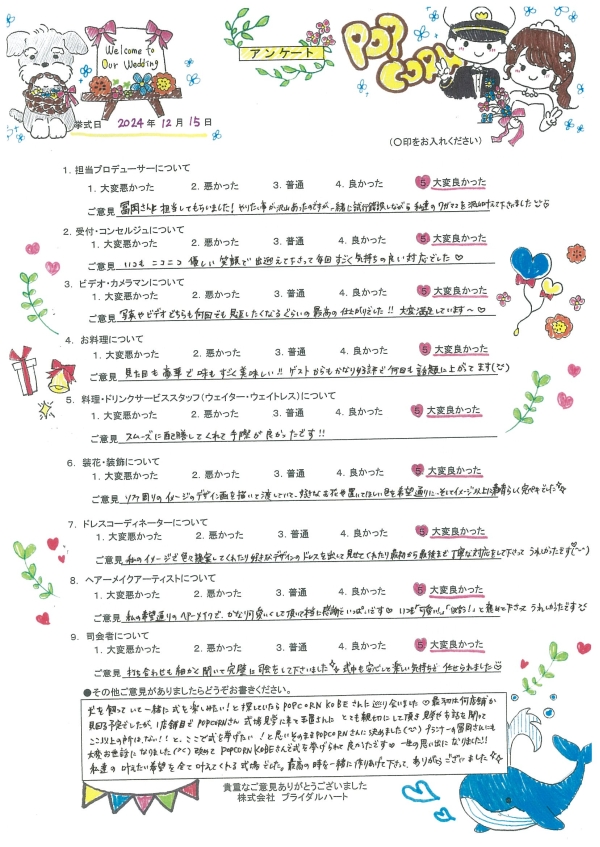 Welcome to
Our Wedding
アンケート
POP
CORN
挙式日 2024年12月15日
(〇印をお入れください)
1. 担当プロデューサーについて
1. 大変悪かった 2. 悪かった 3. 普通 4. 良かった 5 大変良かった
ご意見 冨岡さんに担当してもらいました!やりたい事が沢山あったのですが、一緒に試行錯誤しながら私達のワガママを沢山叶えて下さいました
2. 受付・コンセルジュについて
1. 大変悪かった 2. 悪かった 3. 普通 4. 良かった 5 大変良かった
ご意見 いつもニコニコ優しい笑顔で出迎えて下さって毎回すごく気持ちの良い対応でした♡
3. ビデオ・カメラマンについて
1. 大変悪かった 2. 悪かった 3. 普通 4. 良かった 5 大変良かった
ご意見 写真やビデオどちらも何回でも見返したくなるぐらいの最高の仕上がりでした!!大変満足しています〜♡
4. お料理について
1. 大変悪かった 2. 悪かった 3. 普通 4. 良かった 5 大変良かった
ご意見 見た目も豪華で味もすごく美味しい!!ゲストからもかなり好評で何回も話題に上がってます
5. 料理・ドリンクサービススタッフ(ウェイター・ウェイトレス)について
1. 大変悪かった 2. 悪かった 3. 普通 4. 良かった 5 大変良かった
ご意見 スムーズに配膳してくれて手際が良かったです!!
6. 装花・装飾について
1. 大変悪かった 2. 悪かった 3. 普通 4. 良かった 5 大変良かった
ご意見 ソファ周りのイメージのデザイン画を描いて渡していて、好きなお花や置いてほしい色を希望通りに、そしてイメージ以上に素晴らしく完成でした☆
7. ドレスコーディネーターについて
1. 大変悪かった 2. 悪かった 3. 普通 4. 良かった 5 大変良かった
ご意見 私のイメージで色々提案してくれたり好きなデザインのドレスを出して見せてくれたり最初から最後まで丁寧な対応をして下さって うれしかったです
8. ヘアーメイクアーティストについて
1. 大変悪かった 2. 悪かった 3. 普通 4. 良かった 5 大変良かった
ご意見 私の希望通りのヘアーメイクで、かなり可愛いくして頂いて本当に感謝でいっぱいです♡いつも「可愛い!」と褒めて下さって うれしかったです
9. 司会者について
1. 大変悪かった 2. 悪かった 3. 普通 4. 良かった 5 大変良かった
ご意見 打ち合わせも細かく聞いて完璧に司会をして下さいました☆式中も安心して楽しい気持ちで任せられました
●その他ご意見がありましたらどうぞお書きください。
犬を飼っていて一緒に式を楽しみたい!と探していたらPOPCORN KOBEさんに巡り会いました♡最初は何店舗か
見回る予定でしたが、1店舗目でPOPCORNさん式場見学に来て皆さんにとても親切にして頂き見学やお話を聞いて
ここ以上の所はない!!と、ここで式を挙げたい!と思いそのままPOPCORNさんに決めました プランナーの冨岡さんにも
大変お世話になりました 改めてPOPCORN KOBEさんで式を挙げられて良かったです 一生の思い出になりました!!
私達の叶えたい希望を全て叶えてくれる式場でした。最高の時を一緒に作りあげて下さって、ありがとうございました☆
貴重なご意見ありがとうございました
株式会社 ブライダルハート